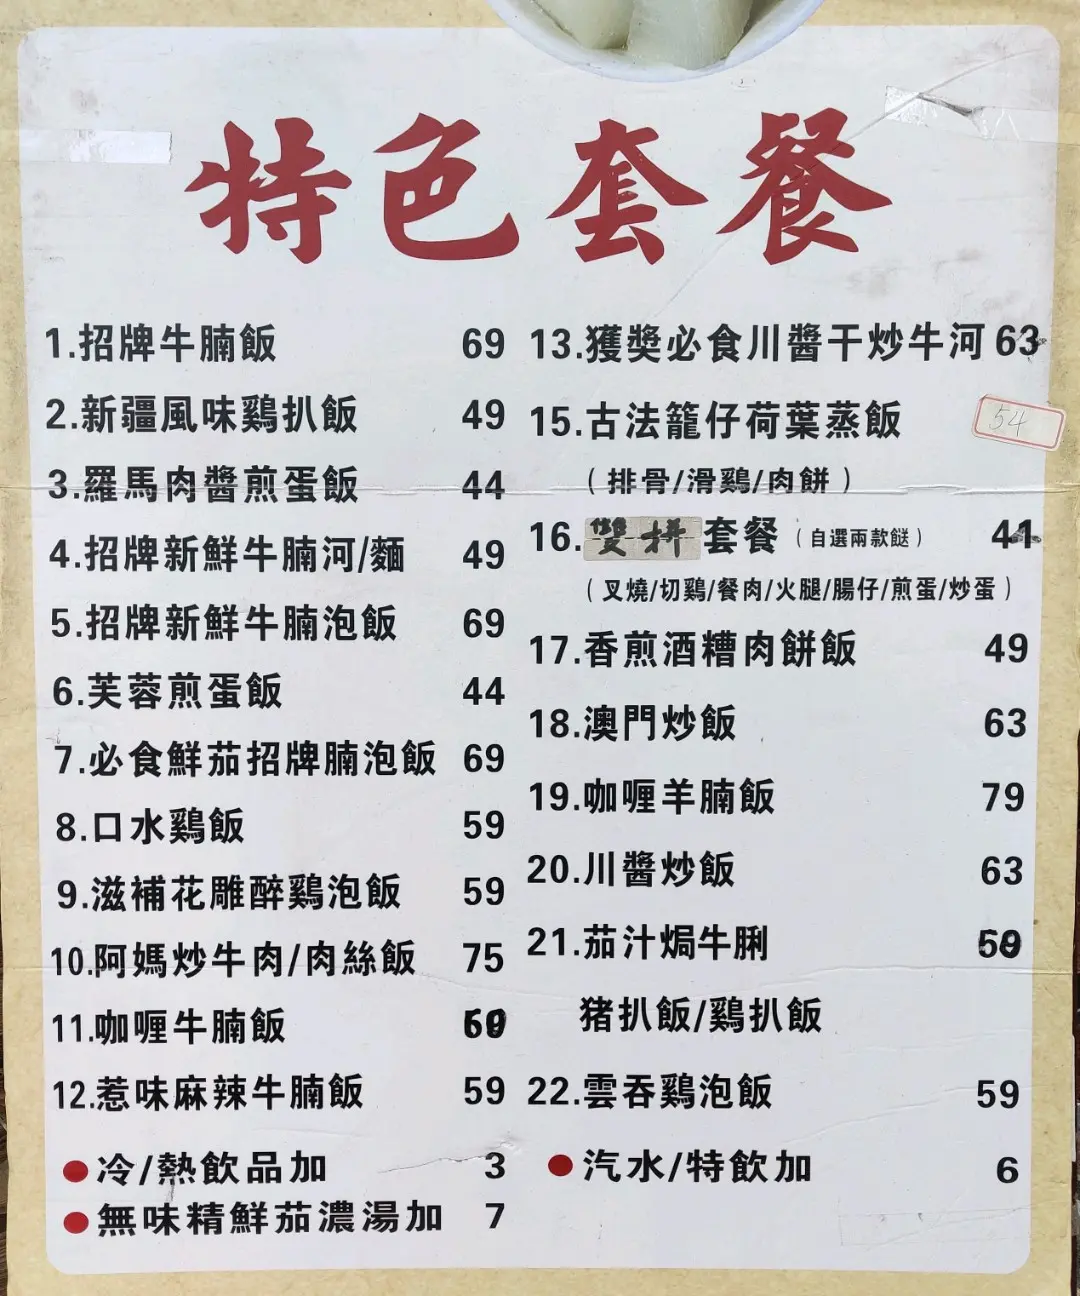 特色套餐
1.招牌牛腩飯 69
2.新疆風味鷄扒飯 49
3.羅馬肉醬煎蛋飯 44
4.招牌新鮮牛腩河/麵 49
5.招牌新鮮牛腩泡飯 69
6.芙蓉煎蛋飯 44
7.必食鮮茄招牌腩泡飯 69
8.口水鷄飯 59
9.滋補花雕醉鷄泡飯 59
10.阿媽炒牛肉/肉絲飯 75
11.咖喱牛腩飯
12.惹味麻辣牛腩飯 59
●冷/熱飲品加 3
●無味精鮮茄濃湯加 7
13.獲獎必食川醬干炒牛河 63
15.古法籠仔荷葉蒸飯 54
（排骨/滑鷄/肉餅）
16.雙拼套餐（自選兩款餸） 41
（叉燒/切鷄/餐肉/火腿/腸仔/煎蛋/炒蛋）
17.香煎酒糟肉餅飯 49
18.澳門炒飯 63
19.咖喱羊腩飯 79
20.川醬炒飯 63
21.茄汁焗牛脷
猪扒飯/鷄扒飯
22.雲吞鷄泡飯 59
●汽水/特飲加 6